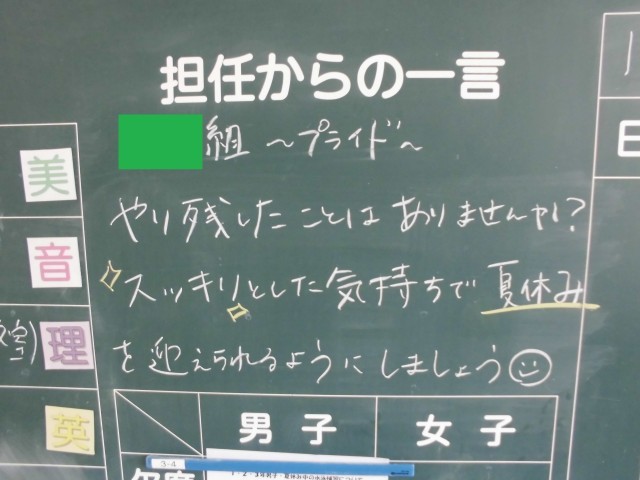 担任からの一言
組 ～プライド～
やり残したことは ありませんか?
スッキリとした気持ちで 夏休み
を 迎えられるように しましょう
美
音
理
英
男子
女子
3-4